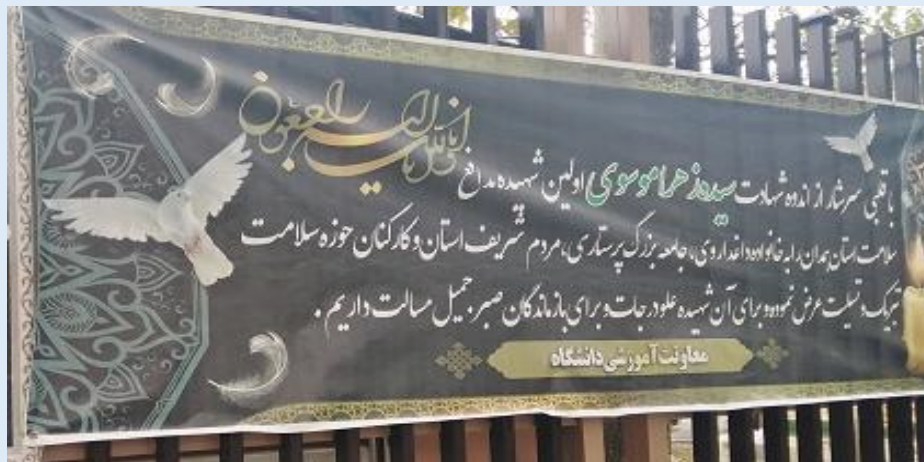 انا لله و انا الیه راجعون
با قلبی سرشار از اندوه شهادت سیده زهرا موسوی اولین شهیده مدافع
سلامت استان همدان، را به خانواده داغدار وی، جامعه بزرگ پرستاری، مردم شریف استان و کارکنان حوزه سلامت
تبریک و تسلیت عرض نموده و برای آن شهیده علو درجات و برای بازماندگان صبر جمیل مسالت داریم.
معاونت آموزشی دانشگاه